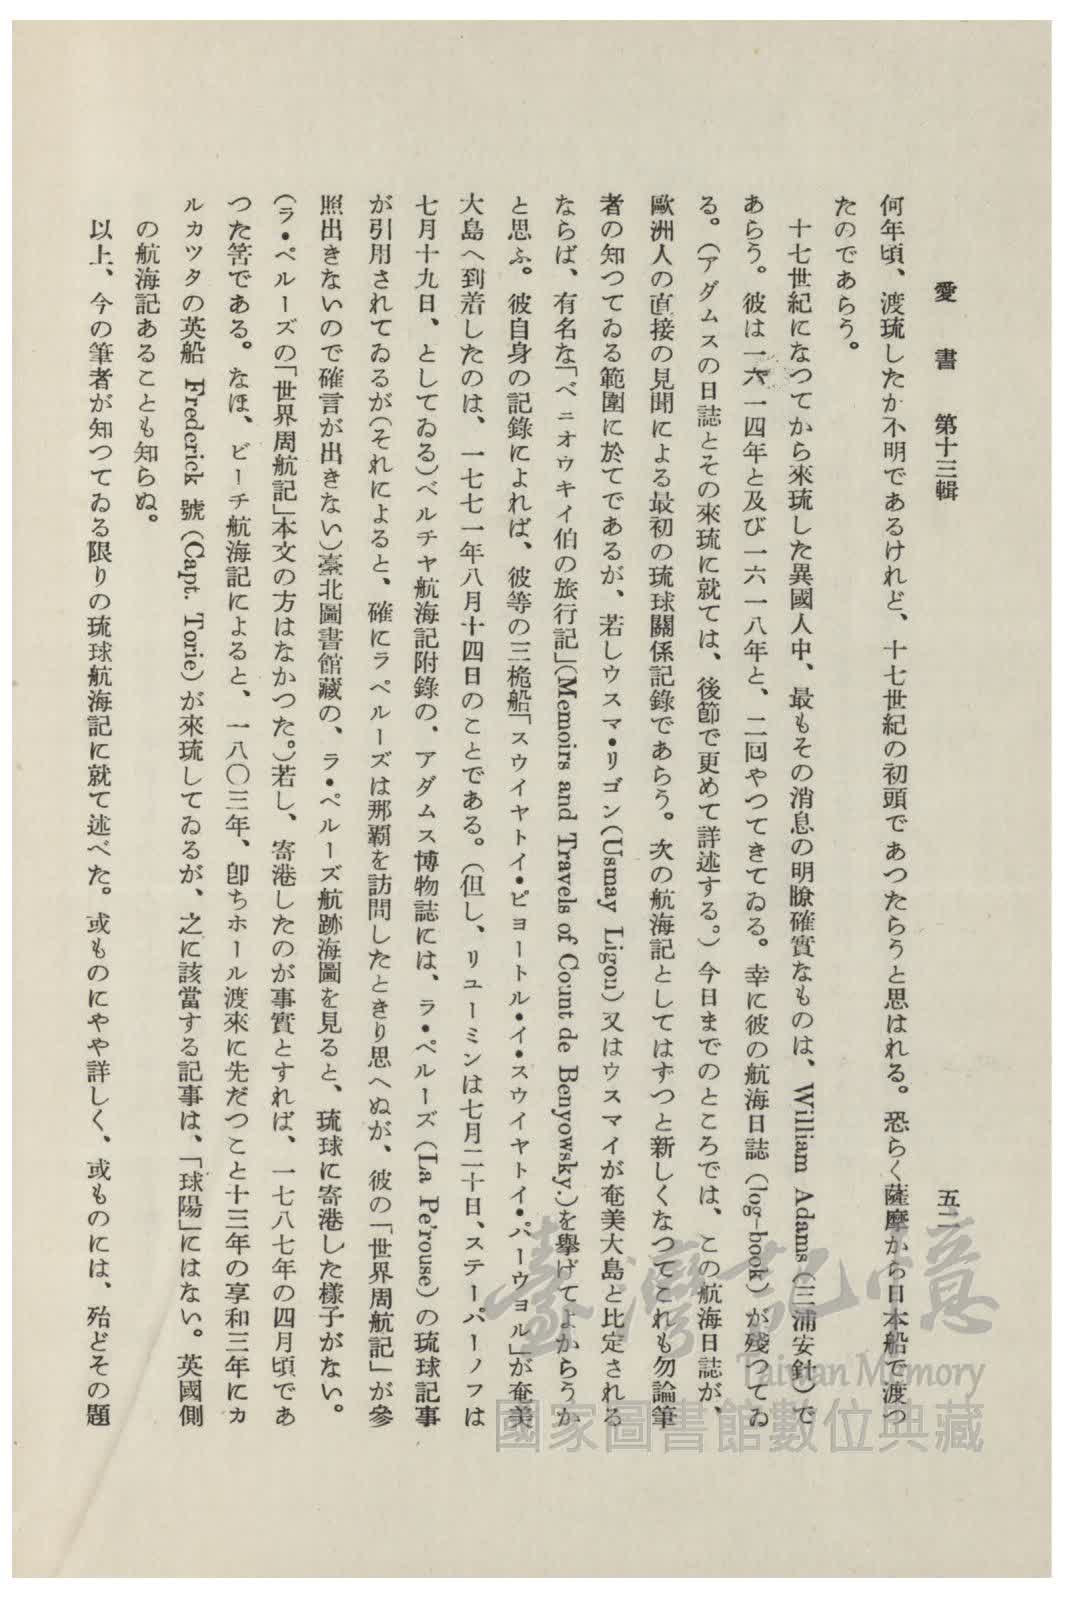 愛書 第十三輯 五二
何年頃、渡琉したか不明であるけれど、十七世紀の初頭であつたらうと思はれる。恐らく薩摩から日本船で渡つ
たのであらう。
十七世紀になつてから來琉した異國人中、最もその消息の明瞭確實なものは、William Adams(三浦安針)で
あらう。彼は一六一四年と及び一六一八年と、二回やつてきてゐる。幸に彼の航海日誌(log-book)が殘つてゐ
る。(アダムスの日誌とその來琉に就ては、後節で更めて詳述する。)今日までのところでは、この航海日誌が、
歐洲人の直接の見聞による最初の琉球關係記錄であらう。次の航海記としてはずつと新しくなつてこれも勿論筆
者の知つてゐる範圍に於てであるが、若しウスマ・リゴン(Usmay Ligon)又はウスマイが奄美大島と比定される
ならば、有名な「ベニオウキイ伯の旅行記」(Memoirs and Travels of Count de Benyowsky.)を擧げてよからうか
と思ふ。彼自身の記錄によれば、彼等の三桅船「スウイヤトイ・ピヨートル・イ・スウイヤトイ・パーウヨル」が奄美
大島へ到着したのは、一七七一年八月十四日のことである。(但し、リユーミンは七月二十日、ステーパーノフは
七月十九日、としてゐる)ベルチヤ航海記附錄の、アダムス博物誌には、ラ・ペルーズ(La Pe'rouse)の琉球記事
が引用されてゐるが(それによると、確にラペルーズは那覇を訪問したときり思へぬが、彼の「世界周航記」が參
照出きないので確言が出きない)臺北圖書館藏の、ラ・ペルーズ航跡海圖を見ると、琉球に寄港した樣子がない。
(ラ・ペルーズの「世界周航記」本文の方はなかつた。)若し、寄港したのが事實とすれば、一七八七年の四月頃であ
つた筈である。なほ、ビーチ航海記によると、一八〇三年、卽ちホール渡來に先だつこと十三年の享和三年にカ
ルカツタの英船 Frederick 號(Capt. Torie)が來琉してゐるが、之に該當する記事は、「球陽」にはない。英國側
の航海記あることも知らぬ。
以上、今の筆者が知つてゐる限りの琉球航海記に就て述べた。或ものにやや詳しく、或ものには、殆どその題
臺灣記憶
Taiwan Memory
國家圖書館數位典藏